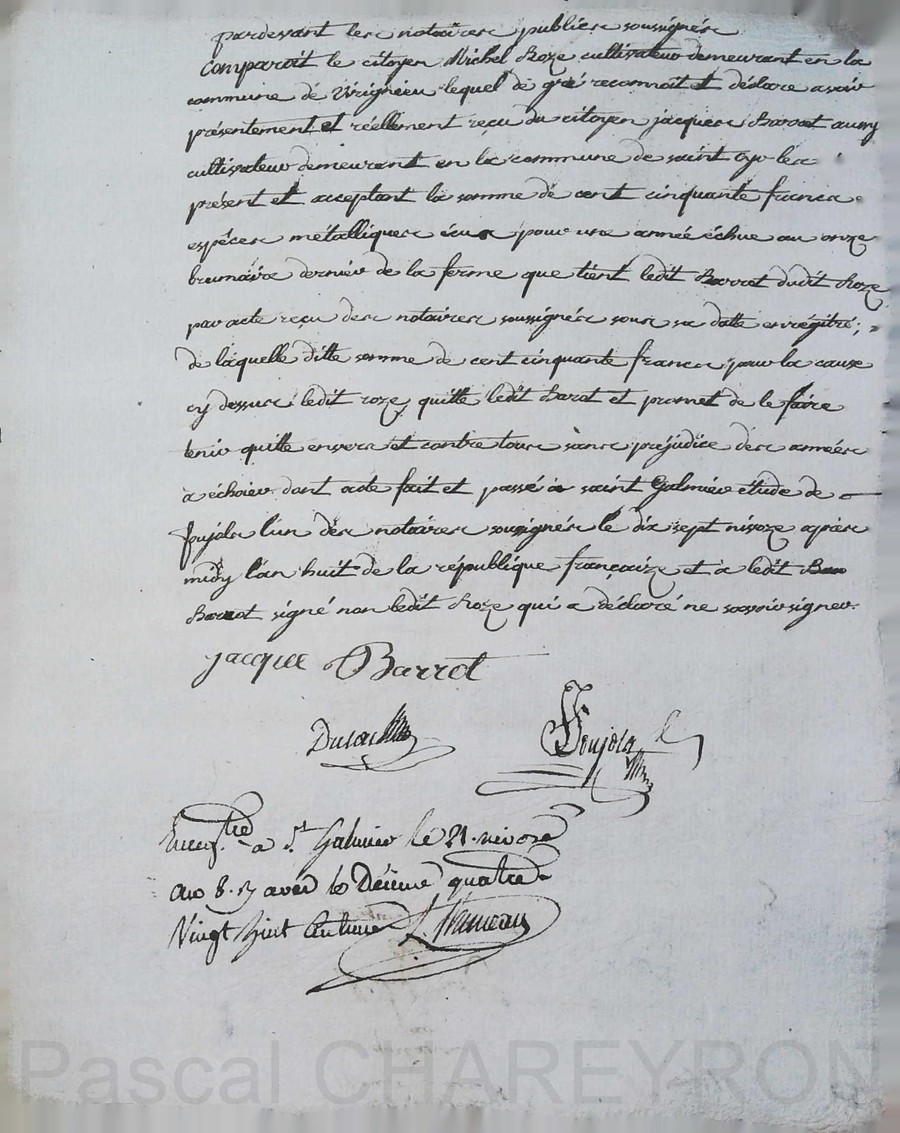 pardevant les notaires publics soussignés
Comparoit le citoyen Michel Roze cultivateur demeurant en la
commune de Virignieu lequel de gré reconnoit et déclare avoir
présentement et réellement reçu du citoyen jacques Barrot aussy
cultivateur demeurant en la commune de saint cyr les
présent et acceptant la somme de cent cinquante francs
espéces métalliques écus pour une année échue au onze
brumaire dernier de la ferme que tient ledit Barrot dudit Roze
par acte reçu des notaires soussignés sous sa datte enrégitré;
de laquelle ditte somme de cent cinquante francs pour la cause
cy dessus ledit roze quitte ledit Barot et promet de le faire
tenir quitte envers et contre tous sans préjudice des années
a échoier dont acte fait et passé a saint Galmier étude de
poujols l'un des notaires soussignés le dix sept nivoze aprés
midy l'an huit de la république françaize et a ledit
Barrot signé non ledit Roze qui a déclaré ne savoir signer.
jacque Barrot
Poujols
a St Galmier le 21. nivose
an 8. Décime quatre
Vingt huit Centimes
Pascal CHAREYRON